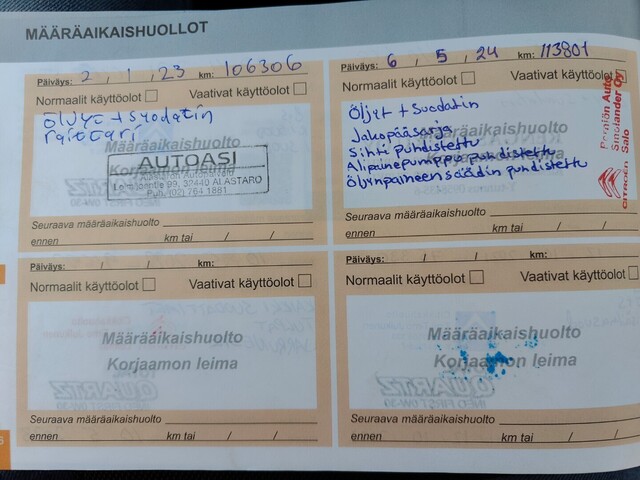 MÄÄRÄAIKAISHUOLLOT
Päiväys: 2 , 1 , 23 km: 106306
Normaalit käyttöolot Vaativat käyttöolot
ÖLJYt + Suodatin
raitari
Määräaikaishuolto
Korjaamon leima
AUTOASI
32440 ALASTARO
Puh. (02) 764 1881
Seuraava määräaikaishuolto
ennen km tai / /
Päiväys: 6 , 5 , 24 km: 113801
Normaalit käyttöolot Vaativat käyttöolot
Öljyt + Suodatin
Jakopääsarja
Sihti puhdistettu
Alipainepumppu puhdistettu
Öljynpaineen säädin puhdistettu
Perniön Auto
Smolander Oy
CITROËN Salo
Seuraava määräaikaishuolto
ennen km tai / /
Päiväys: / / km:
Normaalit käyttöolot Vaativat käyttöolot
Määräaikaishuolto
Korjaamon leima
Seuraava määräaikaishuolto
ennen km tai / /
Päiväys: / / km:
Normaalit käyttöolot Vaativat käyttöolot
Määräaikaishuolto
Korjaamon leima
Seuraava määräaikaishuolto
ennen km tai / /